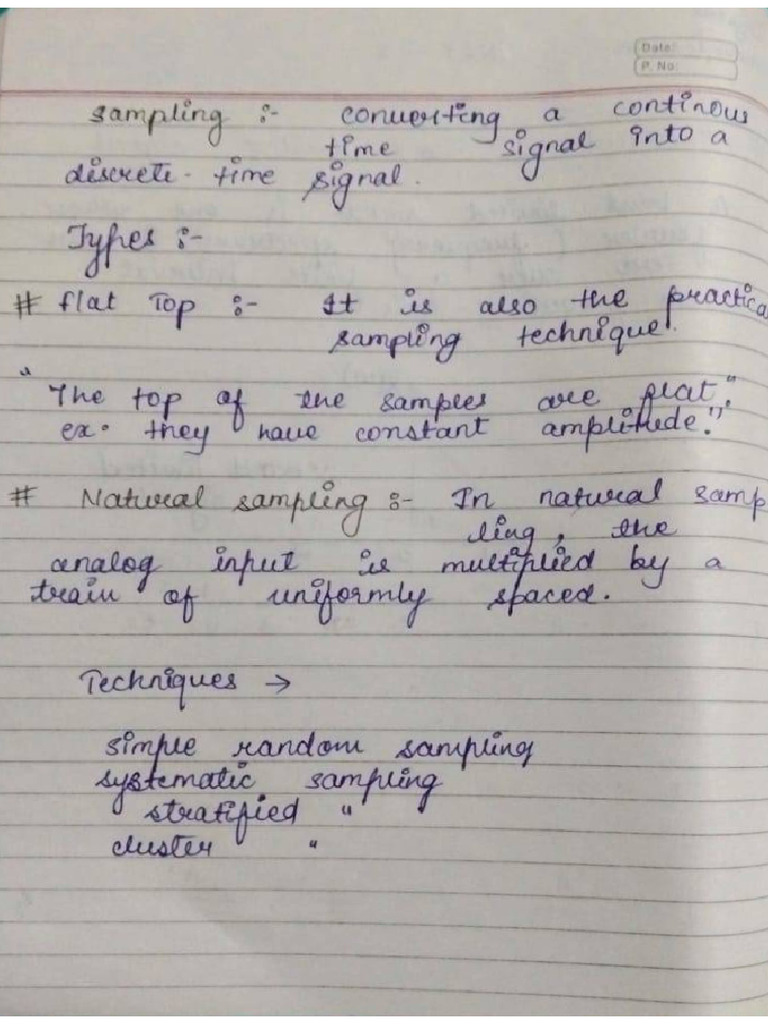 Date:
P. No:
sampling :- converting a continous
time signal into a
discrete- time signal.
Types :-
# flat Top :- It is also the practica
sampling technique.
"The top of the samples are flat."
ex. they have constant amplitude."
# Natural sampling :- In natural samp
ling, the
analog input is multiplied by a
train of uniformly spaced.
Techniques →
simple random sampling
systematic sampling
stratified "
cluster "